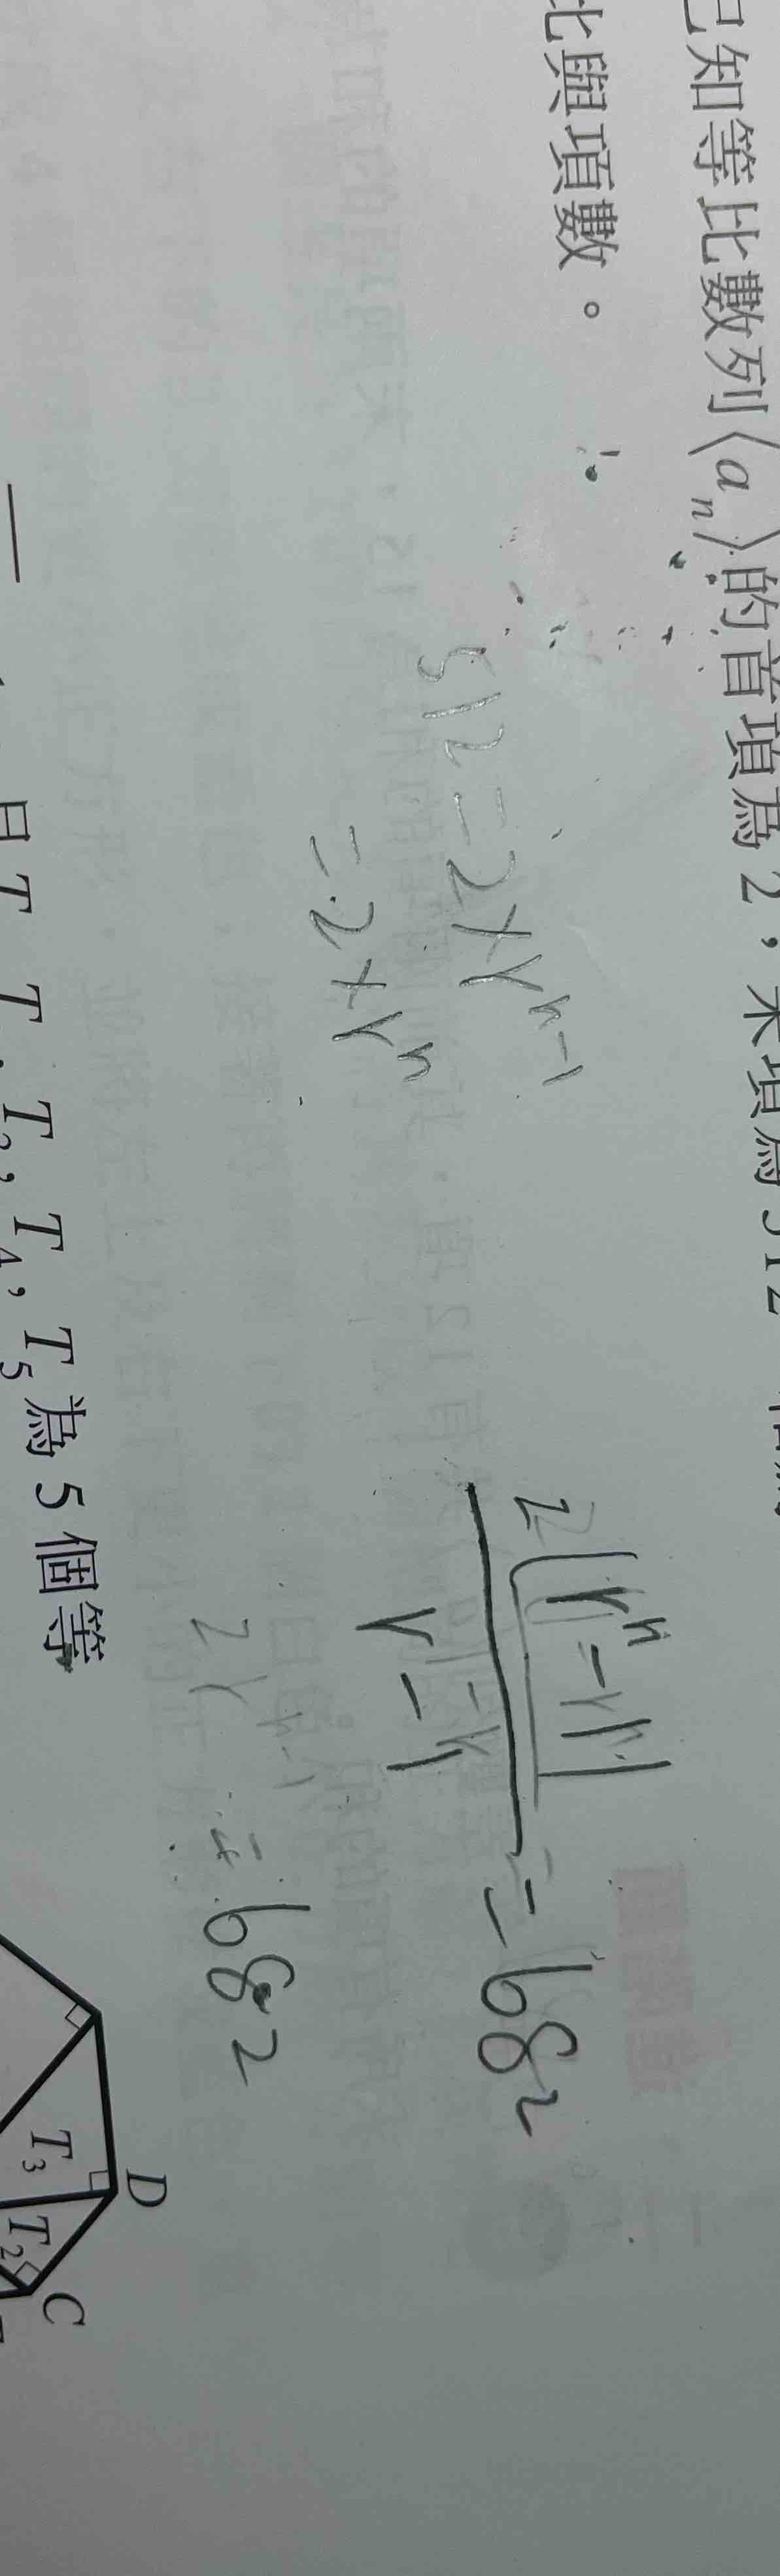 已知等比數列⟨aₙ⟩的首項為 2，末項為 512
比與項數。
512 = 2×r^(n-1)
= 2×rⁿ
2(rⁿ-1)
r-1
= 682
= 682
T₄, T₅ 為 5 個等
D
T₃
T₂
C